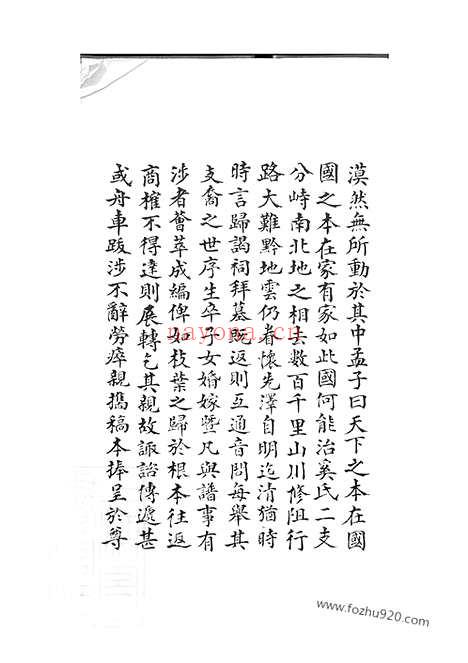 漠然無所動於其中孟子曰天下之本在國
國之本在家有家如此國何能治奚氏二支
分峙南北地之相去數百千里山川修阻行
路大難黔地雲仍眷懷先澤自明迄清猶時
時言歸謁祠拜墓既返則互通音問每舉其
支裔之世序生卒子女婚嫁暨凡與譜事有
涉者薈萃成編俾如枝葉之歸於根本往返
商榷不得達則展轉乞其親故諏詒傳遞甚
或舟車跋涉不辭勞瘁親攜稿本捧呈於尊
nayona.cn
www.fozhu920.com